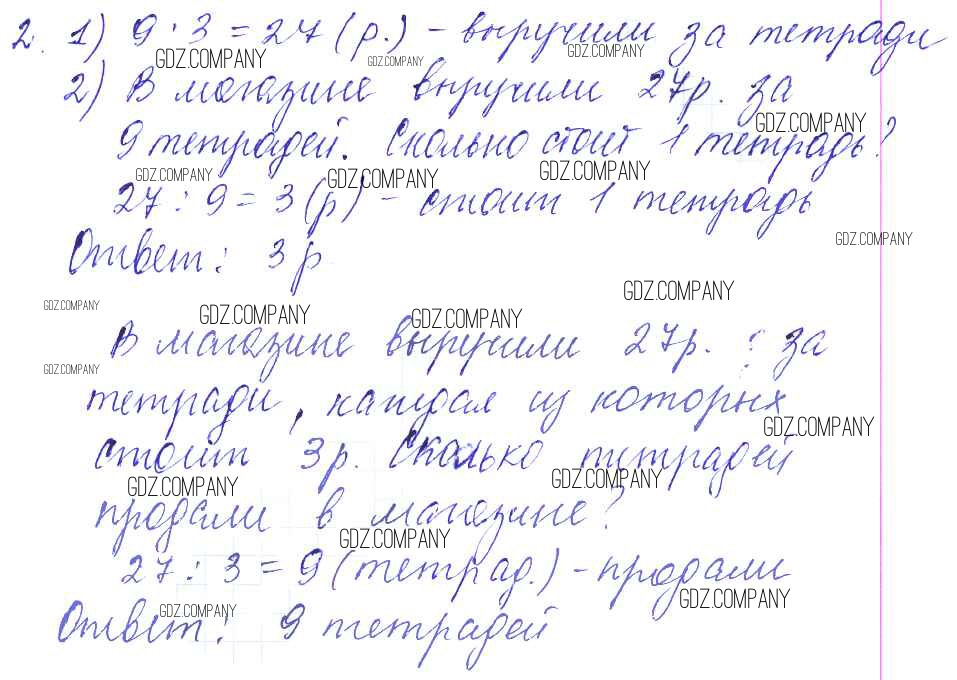 2. 1) 9 · 3 = 27 (р.) – выручили за тетради
GDZ.COMPANY GDZ.COMPANY GDZ.COMPANY
2) В магазине выручили 27р. за
GDZ.COMPANY
9 тетрадей. Сколько стоит 1 тетрадь?
GDZ.COMPANY GDZ.COMPANY GDZ.COMPANY
27 : 9 = 3 (р) – стоит 1 тетрадь
GDZ.COMPANY
Ответ: 3 р
GDZ.COMPANY
GDZ.COMPANY GDZ.COMPANY GDZ.COMPANY
В магазине выручили 27р. за
GDZ.COMPANY
тетради, каждая из которых
GDZ.COMPANY
стоит 3р. Сколько тетрадей
GDZ.COMPANY GDZ.COMPANY
продали в магазине?
GDZ.COMPANY
27 : 3 = 9 (тетрад.) – продали
GDZ.COMPANY GDZ.COMPANY
Ответ: 9 тетрадей